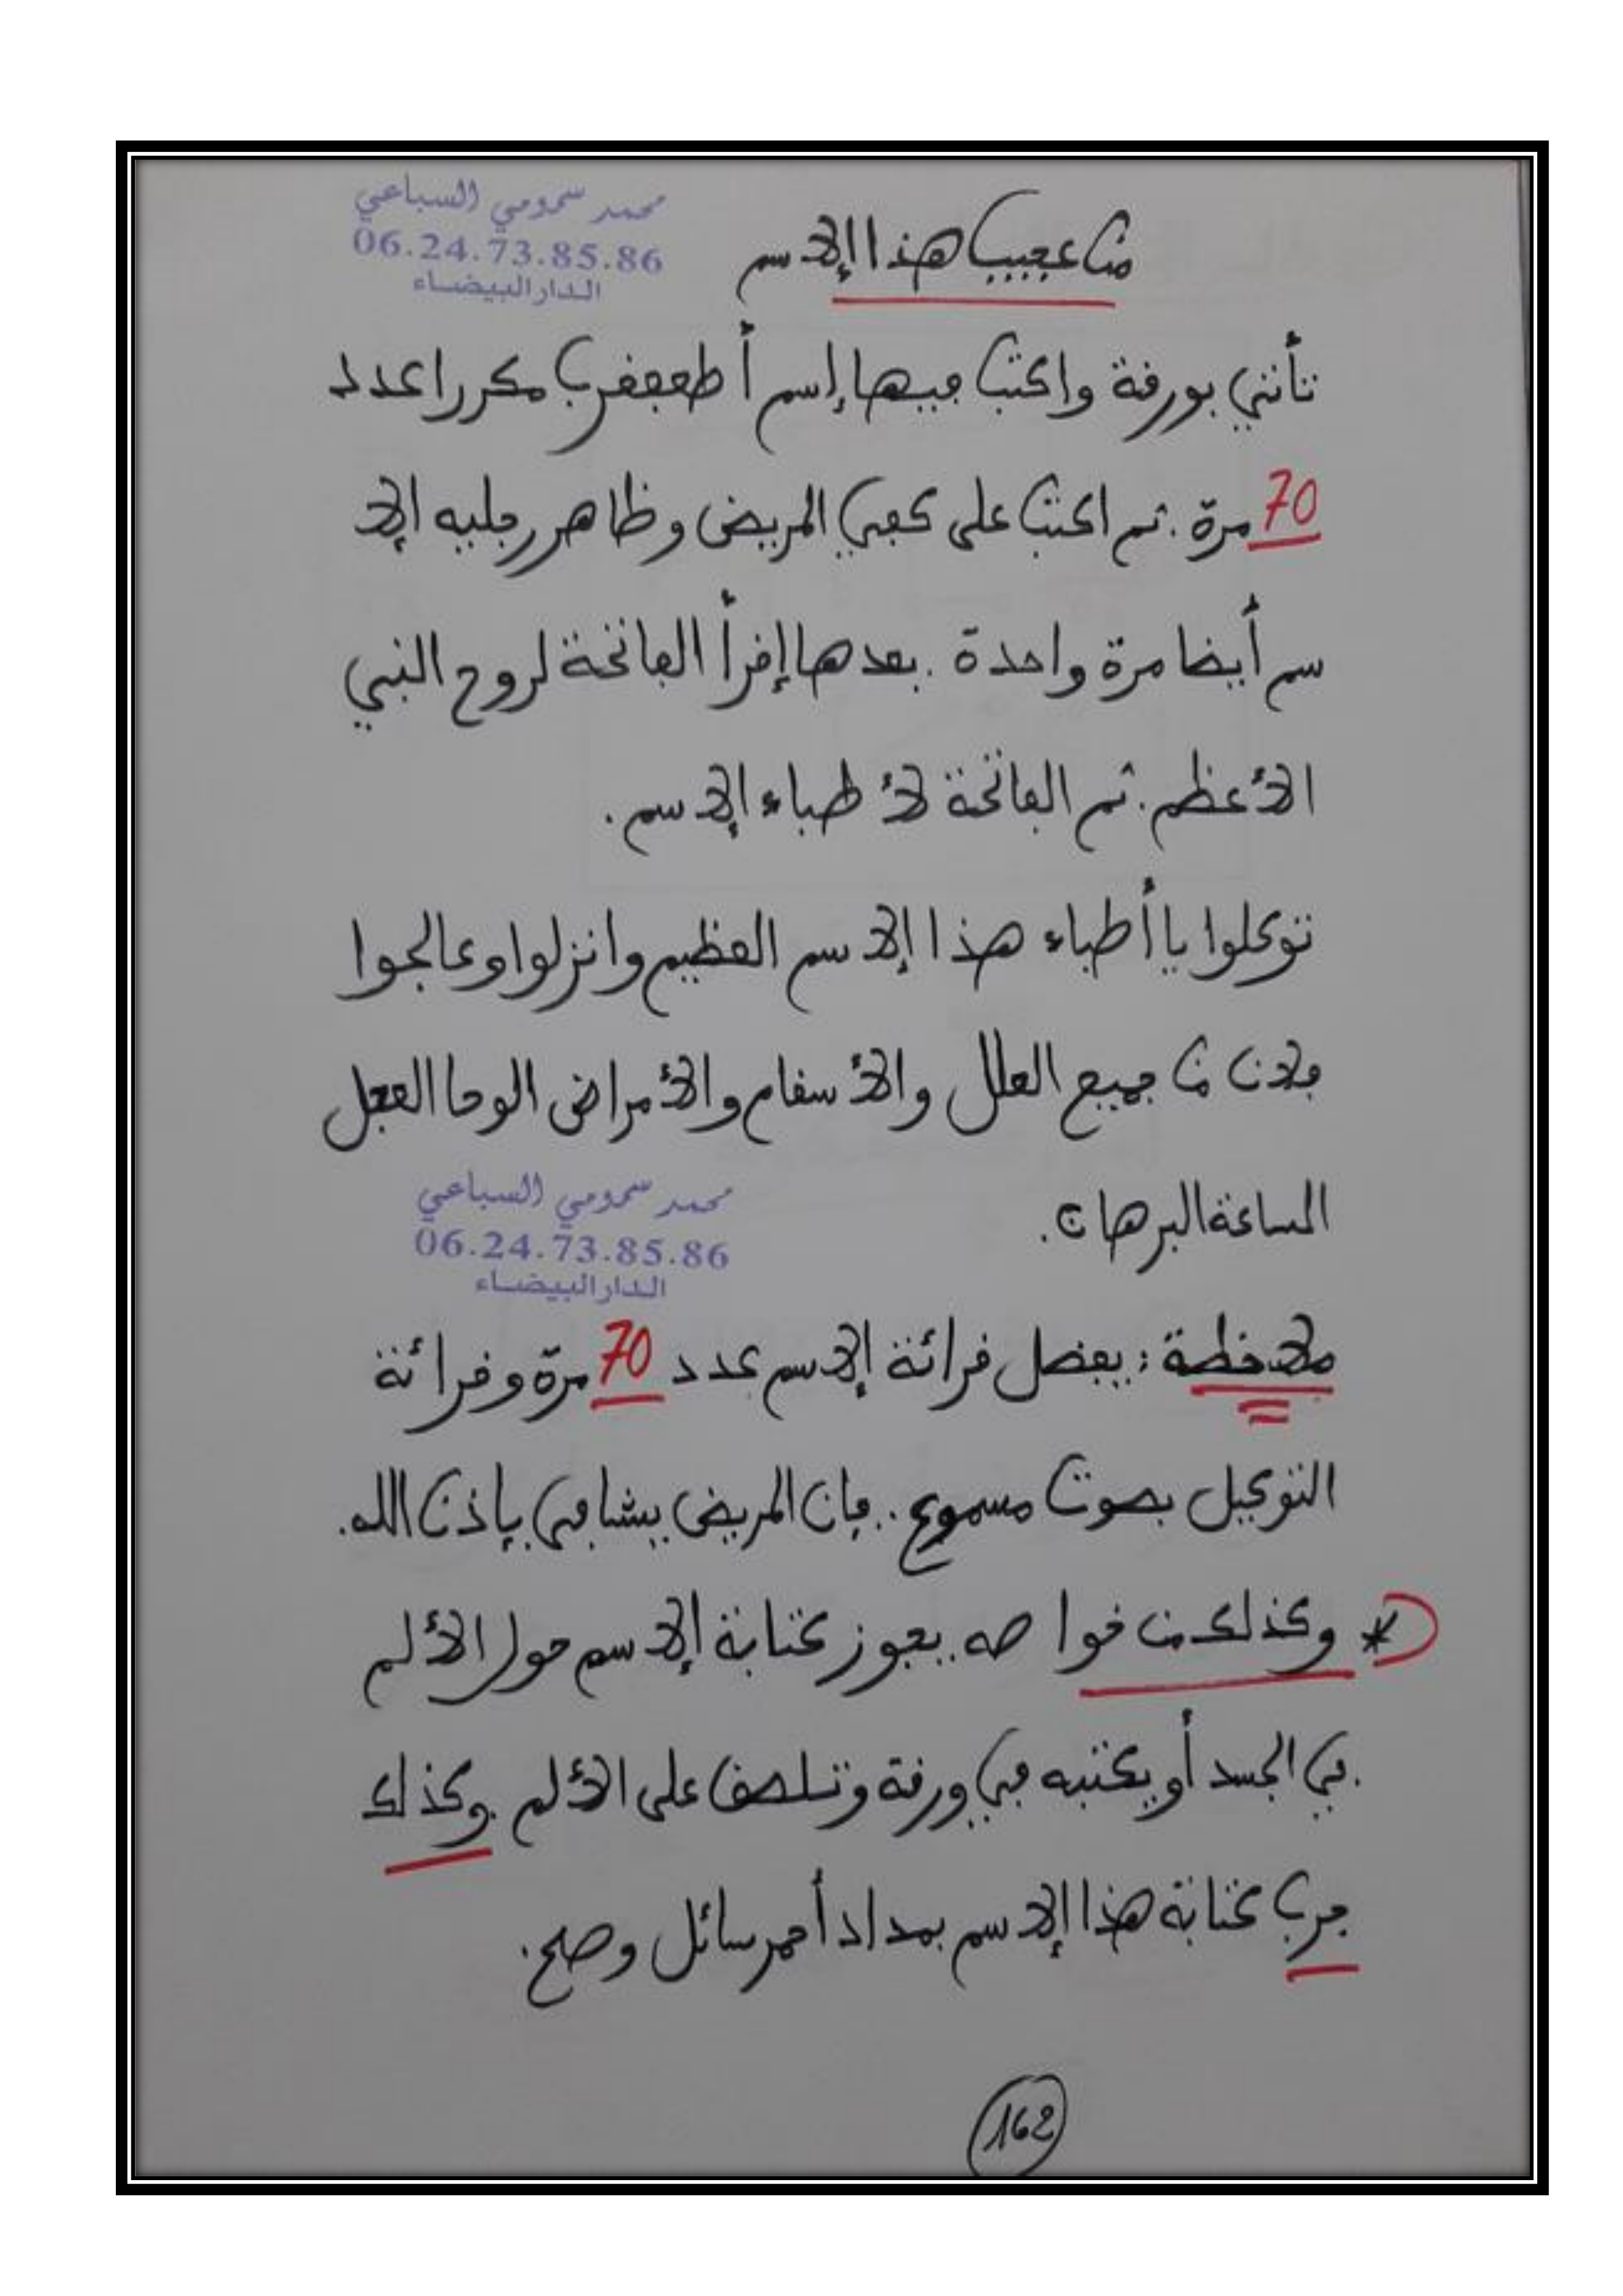 محمد سحومي السباعي
06.24.73.85.86
الدار البيضاء
من عجيب هذا الإسم
تأتي بورقة واكتب فيها إسم مكررا عدد
70 مرة. ثم اكتب على كفي المريض وظاهر رجليه الإ
سم أيضا مرة واحدة. بعدها إقرأ الفاتحة لروح النبي
الأعظم. ثم الفاتحة لأطباء الإسم.
توكلوا يا أطباء هذا الإسم العظيم وانزلوا وعالجوا
فلان من جميع العلل والأسقام والأمراض الوحا العجل
الساعة البرهان.
محمد سحومي السباعي
06.24.73.85.86
الدار البيضاء
ملاحظة: يفضل قرائة الإسم عدد 70 مرة وقرائة
التوكيل بصوت مسموع.. فإن المريض يشافى بإذن الله.
* وكذلك من خواصه يجوز كتابة الإسم حول الألم
في الجسد أو يكتبه في ورقة وتلصق على الألم. وكذلك
جرب كتابة هذا الإسم بمداد أحمر سائل وصح.
162